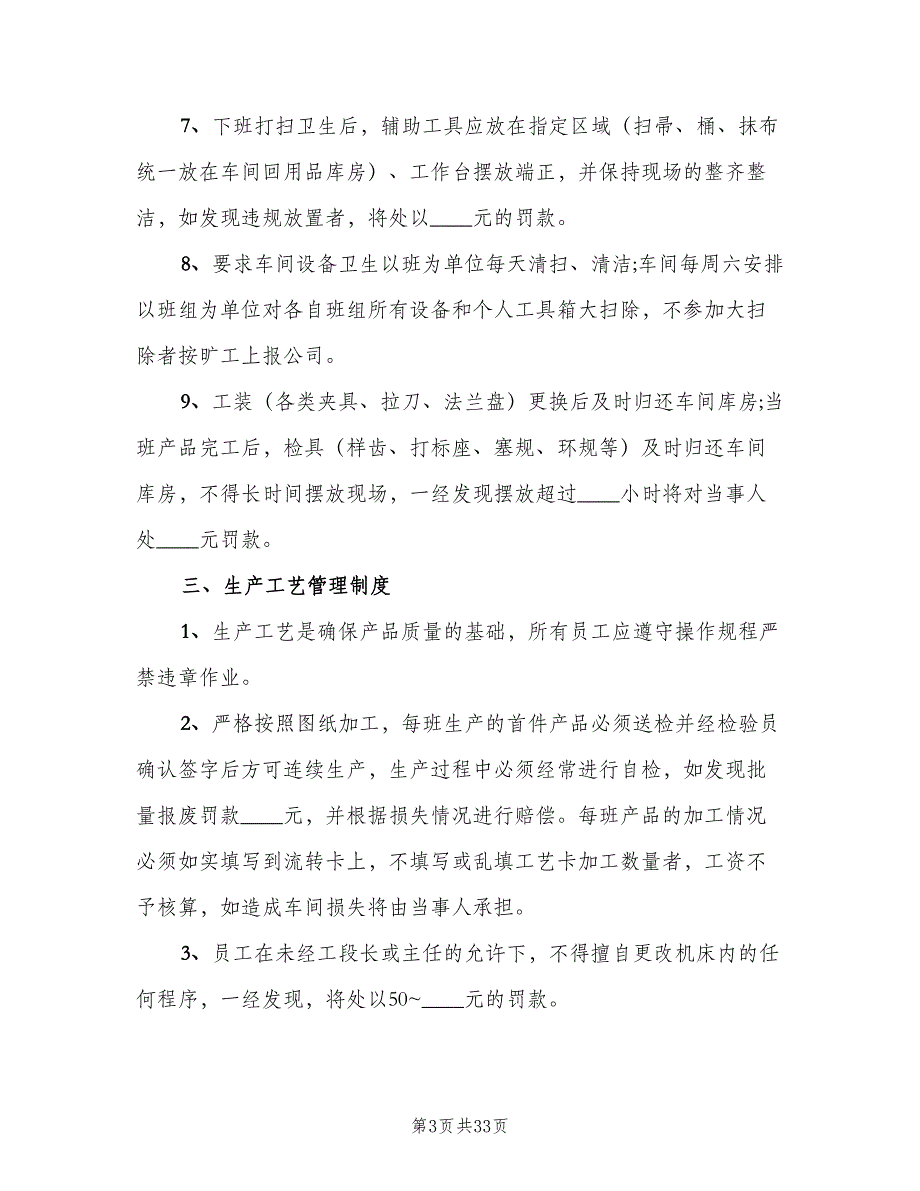 7、下班打扫卫生后，辅助工具应放在指定区域（扫帚、桶、抹布
统一放在车间回用品库房）、工作台摆放端正，并保持现场的整齐整
洁，如发现违规放置者，将处以____元的罚款。
8、要求车间设备卫生以班为单位每天清扫、清洁;车间每周六安排
以班组为单位对各自班组所有设备和个人工具箱大扫除，不参加大扫
除者按旷工上报公司。
9、工装（各类夹具、拉刀、法兰盘）更换后及时归还车间库房;当
班产品完工后，检具（样齿、打标座、塞规、环规等）及时归还车间
库房，不得长时间摆放现场，一经发现摆放超过____小时将对当事人
处____元罚款。
三、生产工艺管理制度
1、生产工艺是确保产品质量的基础，所有员工应遵守操作规程严
禁违章作业。
2、严格按照图纸加工，每班生产的首件产品必须送检并经检验员
确认签字后方可连续生产，生产过程中必须经常进行自检，如发现批
量报废罚款____元，并根据损失情况进行赔偿。每班产品的加工情况
必须如实填写到流转卡上，不填写或乱填工艺卡加工数量者，工资不
予核算，如造成车间损失将由当事人承担。
3、员工在未经工段长或主任的允许下，不得擅自更改机床内的任
何程序，一经发现，将处以50~____元的罚款。
第3页共33页